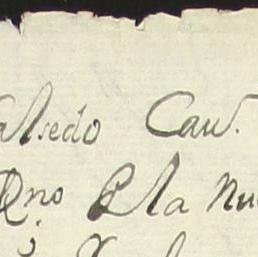 alsedo Cau.
Qno Pla Nu